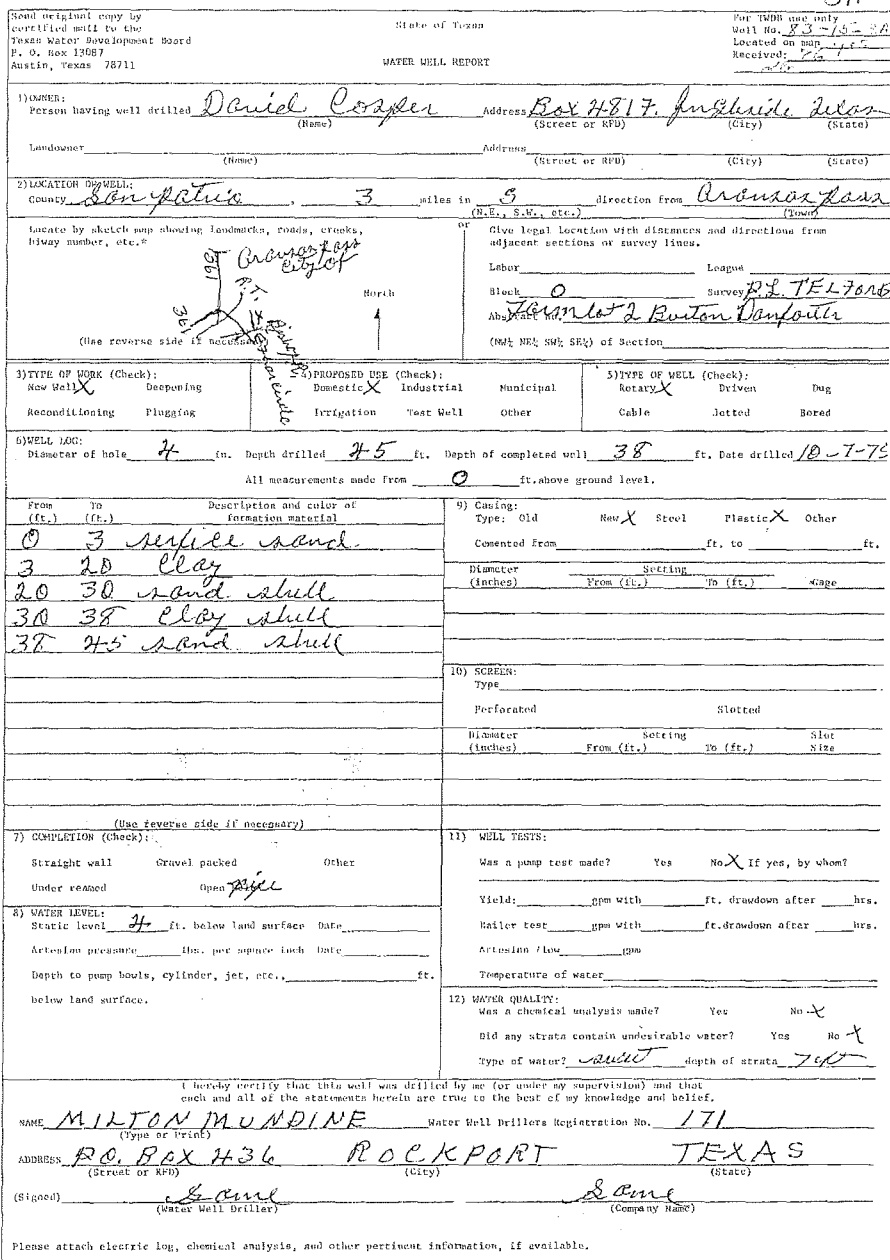 Send original copy by
certified mail to the
Texas Water Development Board
P. O. Box 13087
Austin, Texas 78711
State of Texas
WATER WELL REPORT
For TWDB use only
Well No. 83-15-
Located on map yes
Received:
1) OWNER:
Person having well drilled David Cosper Address Box 4817. Ingleside Texas
(Name) (Street or RFD) (City) (State)
Landowner Address
(Name) (Street or RFD) (City) (State)
2) LOCATION OF WELL:
County San Patricio , 3 miles in S direction from Aransas Pass
(N.E., S.W., etc.) (Town)
Locate by sketch map showing landmarks, roads, creeks,
hiway number, etc.*
Aransas Pass
City of
361
North
(Use reverse side if necessary)
or
Give legal location with distances and directions from
adjacent sections or survey lines.
Labor League
Block O Survey
Abstract No. Farm lot 2 Burton Danforth
(NW¼ NE¼ SW¼ SE¼) of Section
3) TYPE OF WORK (Check):
New Well X Deepening
Reconditioning Plugging
4) PROPOSED USE (Check):
Domestic X Industrial Municipal
Irrigation Test Well Other
5) TYPE OF WELL (Check):
Rotary X Driven Dug
Cable Jetted Bored
6) WELL LOG:
Diameter of hole 4 in. Depth drilled 45 ft. Depth of completed well 38 ft. Date drilled 10-7-75
All measurements made from 0 ft. above ground level.
From To Description and color of
(ft.) (ft.) formation material
0 3 serfice sand
3 20 Clay
20 30 sand shell
30 38 Clay shell
38 45 sand shell
(Use reverse side if necessary)
9) Casing:
Type: Old New X Steel Plastic X Other
Cemented from ft. to ft.
Diameter Setting
(inches) From (ft.) To (ft.) Gage
10) SCREEN:
Type
Perforated Slotted
Diameter Setting Slot
(inches) From (ft.) To (ft.) Size
7) COMPLETION (Check):
Straight wall Gravel packed Other
Under reamed Open pipe
8) WATER LEVEL:
Static level 4 ft. below land surface Date
Artesian pressure lbs. per square inch Date
Depth to pump bowls, cylinder, jet, etc., ft.
below land surface.
11) WELL TESTS:
Was a pump test made? Yes No X If yes, by whom?
Yield: gpm with ft. drawdown after hrs.
Bailer test gpm with ft. drawdown after hrs.
Artesian flow gpm
Temperature of water
12) WATER QUALITY:
Was a chemical analysis made? Yes No X
Did any strata contain undesirable water? Yes No X
Type of water? sweet depth of strata 7 ft
I hereby certify that this well was drilled by me (or under my supervision) and that
each and all of the statements herein are true to the best of my knowledge and belief.
NAME MILTON MUNDINE Water Well Drillers Registration No. 171
(Type or Print)
ADDRESS P.O. BOX 436 ROCKPORT TEXAS
(Street or RFD) (City) (State)
(Signed) Same Same
(Water Well Driller) (Company Name)
Please attach electric log, chemical analysis, and other pertinent information, if available.